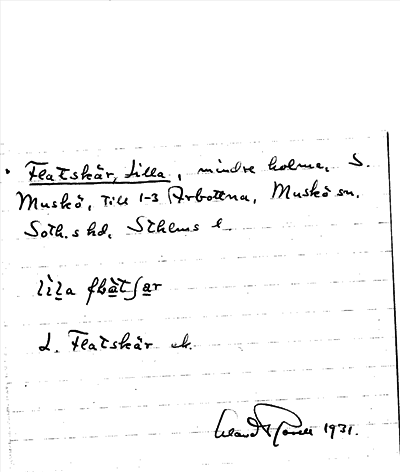 Flatskär, Lilla, mindre holme, S.
Muskö, Till 1-3 Arbottna, Muskö sn.
Soth.s hd, Sthlms l.
lìl̲a flàt̲ʃa̲r
L. Flatskär ek.
1931.